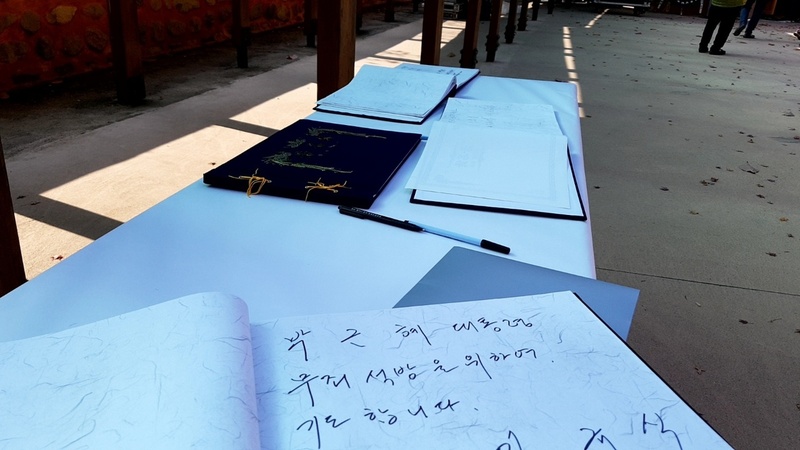 박 근 혜 대통령
무죄 석방을 위하여.
기도 합니다.
재 석